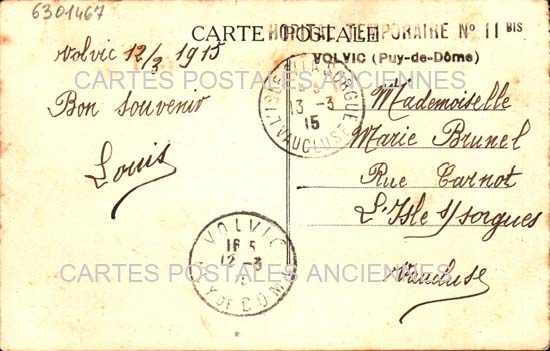 6301467
CARTE POSTALE
HOPITAL TEMPORAIRE No 11 BIS
VOLVIC (Puy-de-Dôme)
Volvic 12/3 1915
Bon Souvenir
Louis
Mademoiselle
Marie Brunel
Rue Carnot
L'Isle s/sorgues
Vaucluse
13 -3
15
VAUCLUSE
VOLVIC
16 5
12 -3
PUY DE DOME
CARTES POSTALES ANCIENNES
CARTES POSTALES ANCIENNES